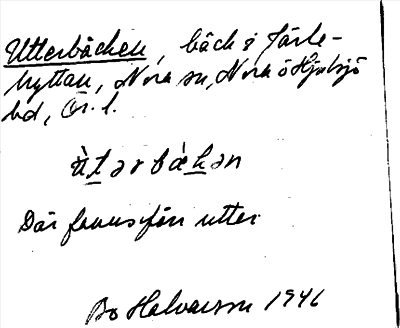 Utterbäcken, bäck i Järle-
hyttan, Nora sn, Nora o Hjulsjö
bd, Ör. l.
ùtərbäkən
Där fanns förr utter
Bo Halvarson 1946